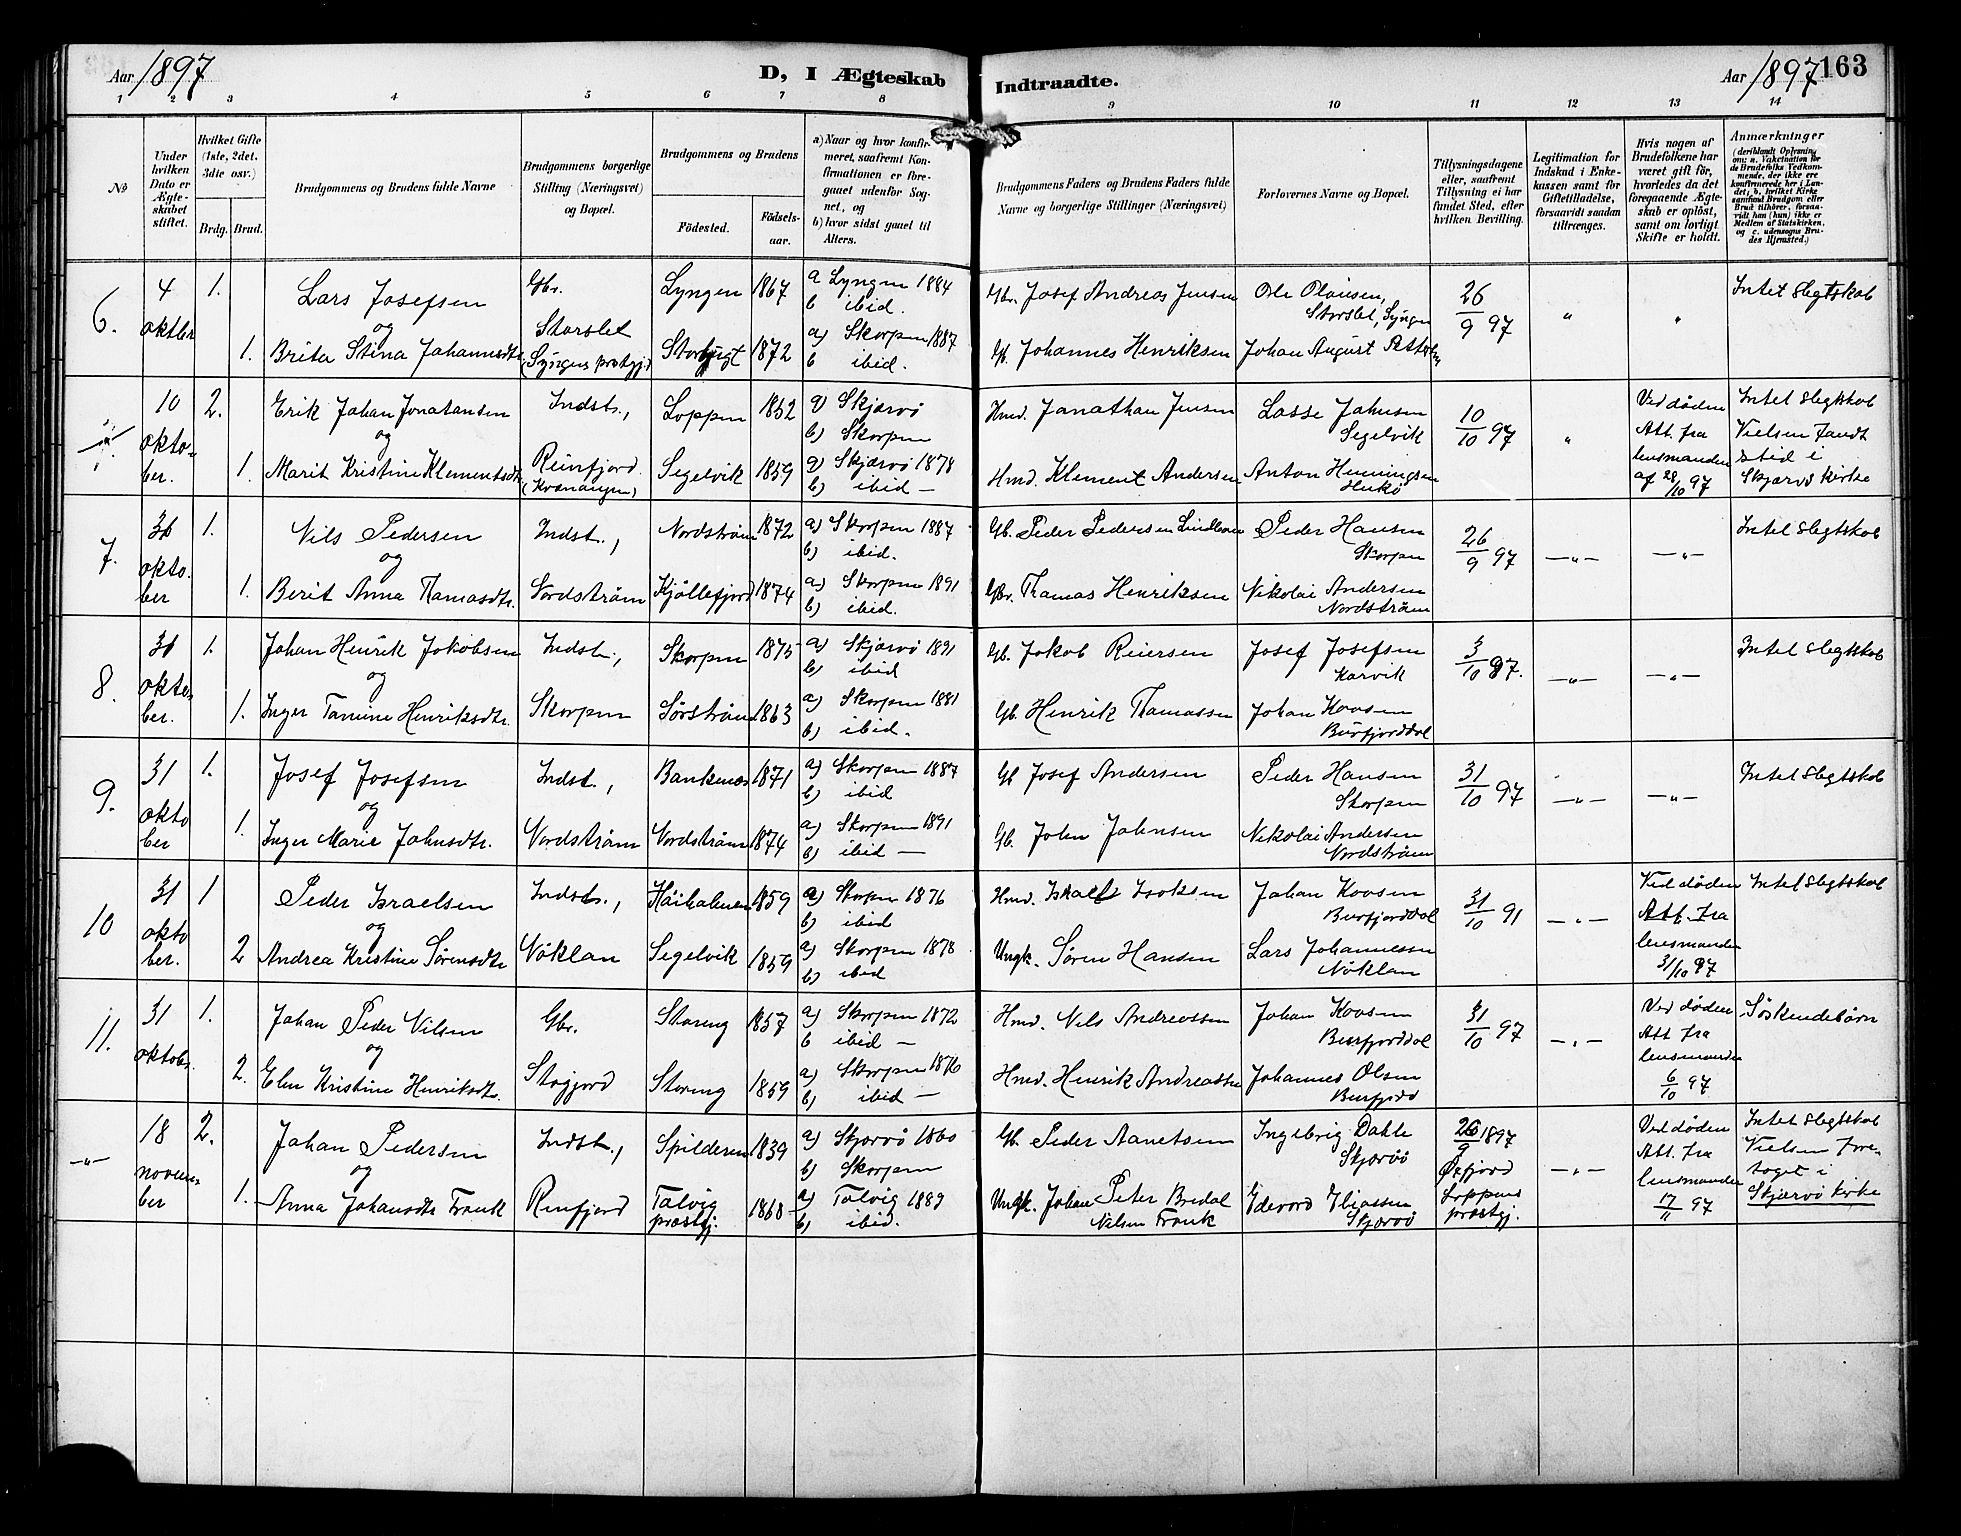 Aar 1897
D, I Ægteskab
Indtraadte.
Aar 1897
163
1 2 3 4 5 6 7 8 9 10 11 12 13 14
№
Under hvilken Dato er Ægteskabet stiftet.
Hvilket Gifte (1ste, 2det, 3die osv.)
Brdg. Brud.
Brudgommens og Brudens fulde Navne
Brudgommens borgerlige Stilling (Næringsvei) og Bopæl.
Brudgommens og Brudens
Fødested.
Fødselsaar.
a) Naar og hvor konfirmeret, saafremt Konfirmationen er foregaaet udenfor Sognet, og
b) hvor sidst gaaet til Alters.
Brudgommens Faders og Brudens Faders fulde Navne og borgerlige Stillinger (Næringsvei)
Forlovernes Navne og Bopæl.
Tillysningsdagene eller, saafremt Tillysning ei har fundet Sted, efter hvilken Bevilling.
Legitimation for Indskud i Enkekassen samt for Giftetilladelse, forsaavidt saadan tiltrænges.
Hvis nogen af Brudefolkene har været gift før, hvorledes da det foregaaende Ægteskab er opløst, samt om lovligt Skifte er holdt.
Anmærkninger
(deriblandt Oplysning om: a. Vakcination for de Brudefolks Vedkommende, der ikke ere konfirmerede her i Landet; b. hvilket Kirkesamfund Brudgom eller Brud tilhører, forsaavidt han (hun) ikke er Medlem af Statskirken, og c. udensogns Brudes Hjemsted.)
6. 4 oktber 1. Lars Josefsen Gbr. Lyngen 1867 a Lyngen 1884 Gbr. Josef Andreas Jensen Ole Olausen, 26/9 97 " " Intet slegtskab
og Storslet b ibid. Storslet, Lyngen
1. Brita Stina Johannesdtr. (Lyngens prestgj.) Storbugt 1872 a) Skorpen 1887 Gb. Johannes Henriksen Johan August Pettersen
b ibid.
10 oktober. 2. Erik Johan Jonatansen Indst., Loppen 1852 a) Skjærvö Hmd. Janathan Jensen Lasse Jahnsen 10/10 97 " Ved döden Intet slegtskab
og b) Skorpen Segelvik Att. fra Vielsen fandt
1. Marit Kristine Klementsdtr. Reinfjord. Segelvik 1859 a) Skjærvö 1878 Hmd. Klement Andersen Anton Henningsen lensmanden sted i
(Kvænangen) b) ibid — af 28/10 97 Skjærvö kirke
7. 31 oktober 1. Nils Pedersen Indst., Nordsträm 1872 a) Skorpen 1887 Gb. Peder Pedersen Peder Hansen 26/9 97 —"— —"— Intet slegtskab
og b) ibid. Skorpen
1. Berit Anna Thamasdtr. Sordsträm Kjöllefjord 1874 a) Skorpen 1891 Gbr. Thamas Henriksen Nikolai Andersen
b) ibid. Nordsträm
8. 31 oktober. 1. Johan Henrik Jokobsen Indst., Skorpen 1875 a) Skjærvö 1891 Gb. Jakob Reiersen Josef Josefsen 3/10 97. —"— —"— Intet slegtskab
og b) ibid Karvik
1. Inger Tamine Henriksdtr. Skorpen Sörsträm 1863 a) Skorpen 1881 Gb. Henrik Thamassen Johan Koosen
b) ibid. Burfjorddal
9. 31 oktober 1. Josef Josefsen Indst., Bankenæs 1871 a) Skorpen 1887 Gb Josef Andersen Peder Hansen 31/10 97 —"— —"— Intet slegtskab
og b) ibid Skorpen
1. Inger Marie Jahnsdtr. Nordsträm Nordsträm 1874 a) Skorpen 1891 Gb. John Johnsen Nikolai Andersen
b) ibid — Nordsträm
10 31 oktober. 1 Peder Israelsen Indst., 1859 a) Skorpen 1876 Hmd. Johan Koosen 31/10 91 —"— Ved döden Intet slegtskab
og b) ibid Burfjorddal Att. fra
2 Andrea Kristine Sörensdtr Nöklan Segelvik 1859 a) Skorpen 1878 Ungk. Sören Hansen Lars Johannessen lensmanden
b) ibid Nöklan 31/10 97
11. 31 oktobr. 1. Johan Peder Nilsen Gbr. Storeng 1857 a) Skorpen 1872 Hmd. Nils Andreassen Johan Koosen 31/10 97 —"— Ved döden Söskendebörn
og b ibid — Burfjorddal Att. fra
2. Elen Kristine Henriksdtr. Stogjord Storeng 1859 a) Skorpen 1876 Hmd. Henrik Andreassen Johannes Olsen lensmanden
b) ibid — Burfjord 6/10 97
—"— 18 november 2. Johan Pedersen Indst., Spilderen 1839 a) Skjærvö 1860 Gb. Peder Aanetsen Ingebrig Dahle 26/9 1897 —"— Ved döden Intet slegtskab
og b) Skorpen Skjærvö Öxfjord Att. fra Vielsen fore-
1. Anna Johansdtr Frank Reinfjord Talvig 1868 a) Talvig 1889 Ungk. Johan Peter Bredal Edevard Eliassen Loppens lensmanden taget i
præstgj. b) ibid. Nilsen Frank Skjærvö præstgj. 17/11 97 Skjærvö kirke